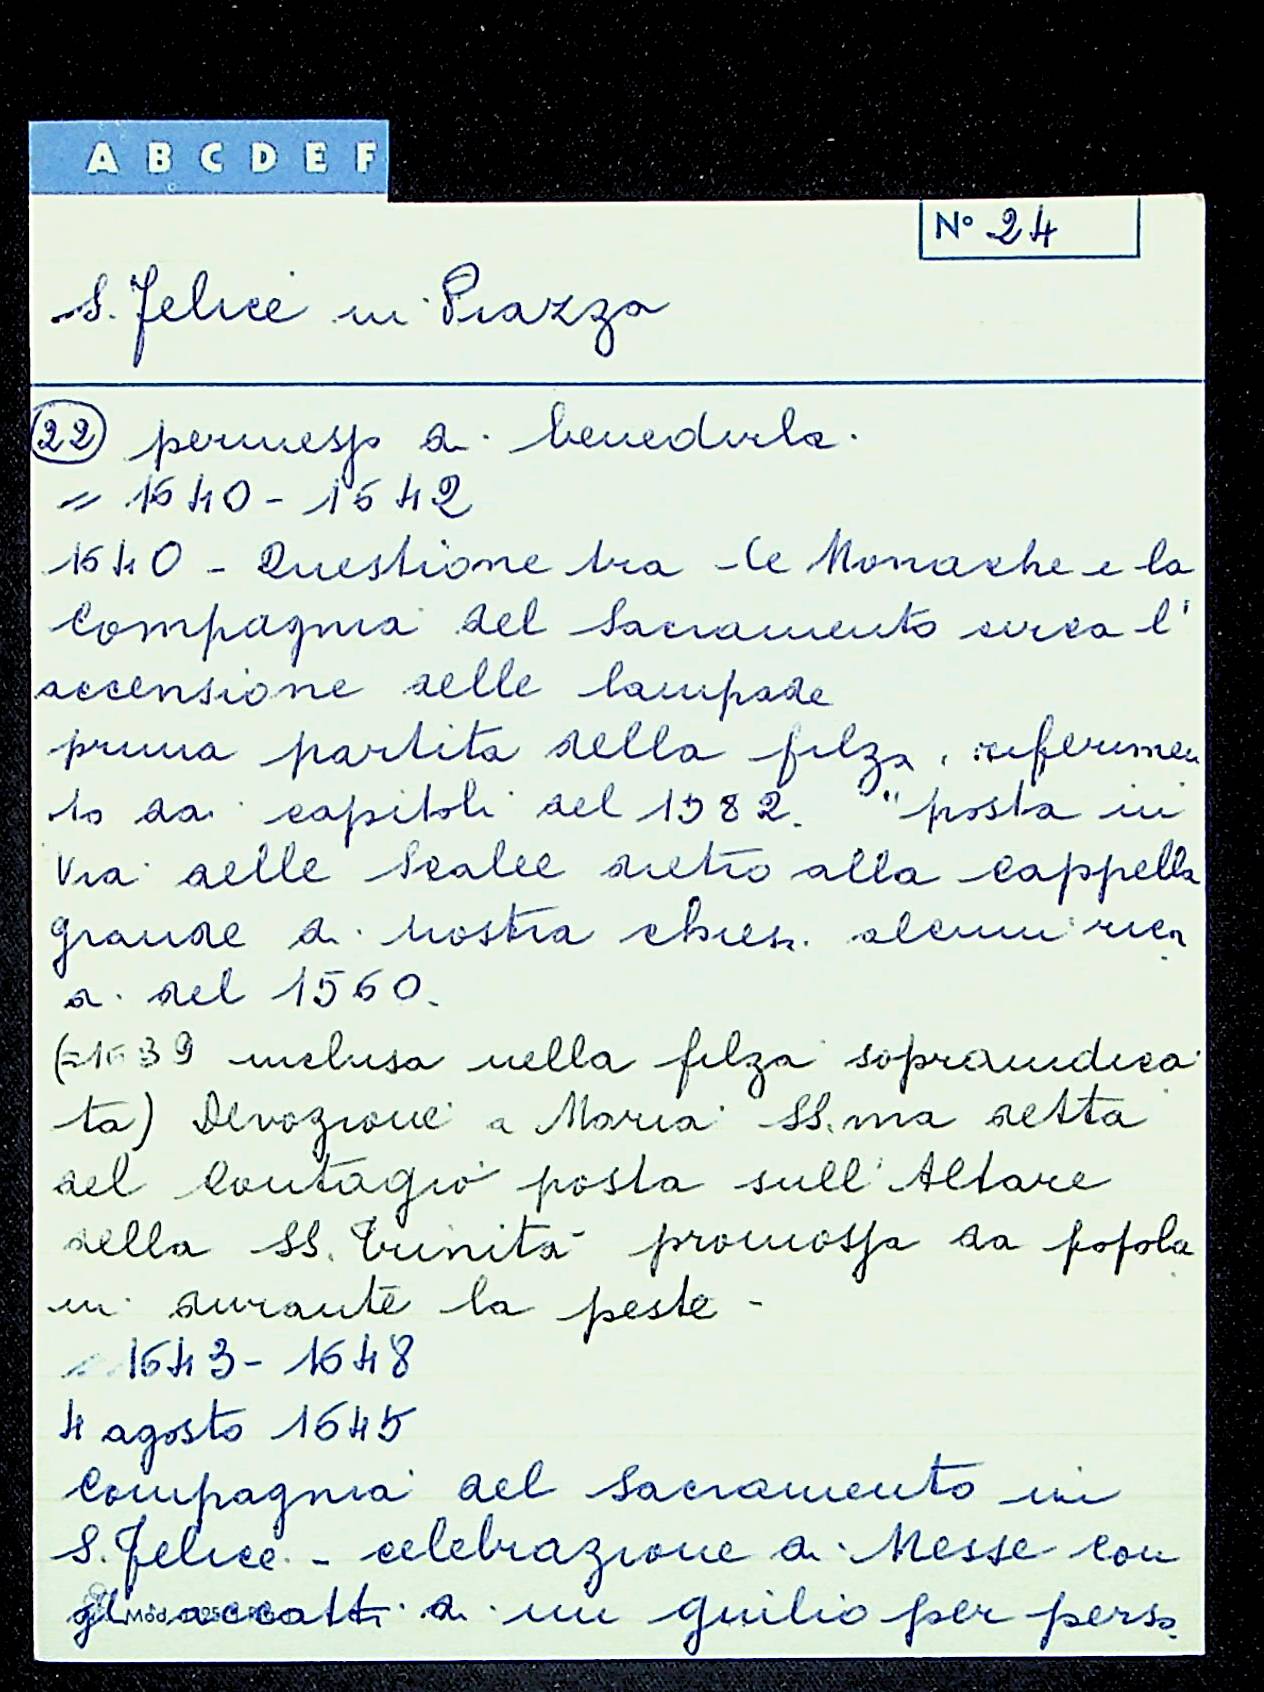 A B C D E F
N° 24
S. Felice in Piazza
22 permesso di benedirla.
= 1640 - 1642
1640 - Questione tra le Monache e la
Compagnia del Sacramento circa l'
accensione delle lampade
prima partita della filza, riferimen
to dai capitoli del 1582. "posta in
Via delle Scalee dietro alla cappella
grande di nostra chiesa. alcuni
di del 1560.
(=1639 inclusa nella filza sopraindica
ta) Devozione a Maria SS.ma detta
del Contagio posta sull'Altare
della SS. Trinità promossa da popola
ni durante la peste -
= 1643 - 1648
4 agosto 1645
Compagnia del Sacramento in
S. Felice. - celebrazione di Messe con
gli accatti di un giulio per perso